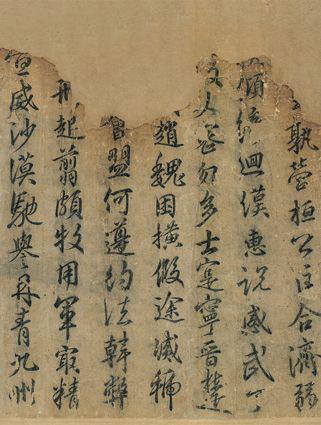 孰營桓公匡合濟弱
傾綺迴漢惠說感武丁
乂密勿多士寔寧晉楚
趙魏困橫假途滅虢
會盟何遵約法韓弊
刑起翦頗牧用軍最精
宣威沙漠馳譽丹青九州